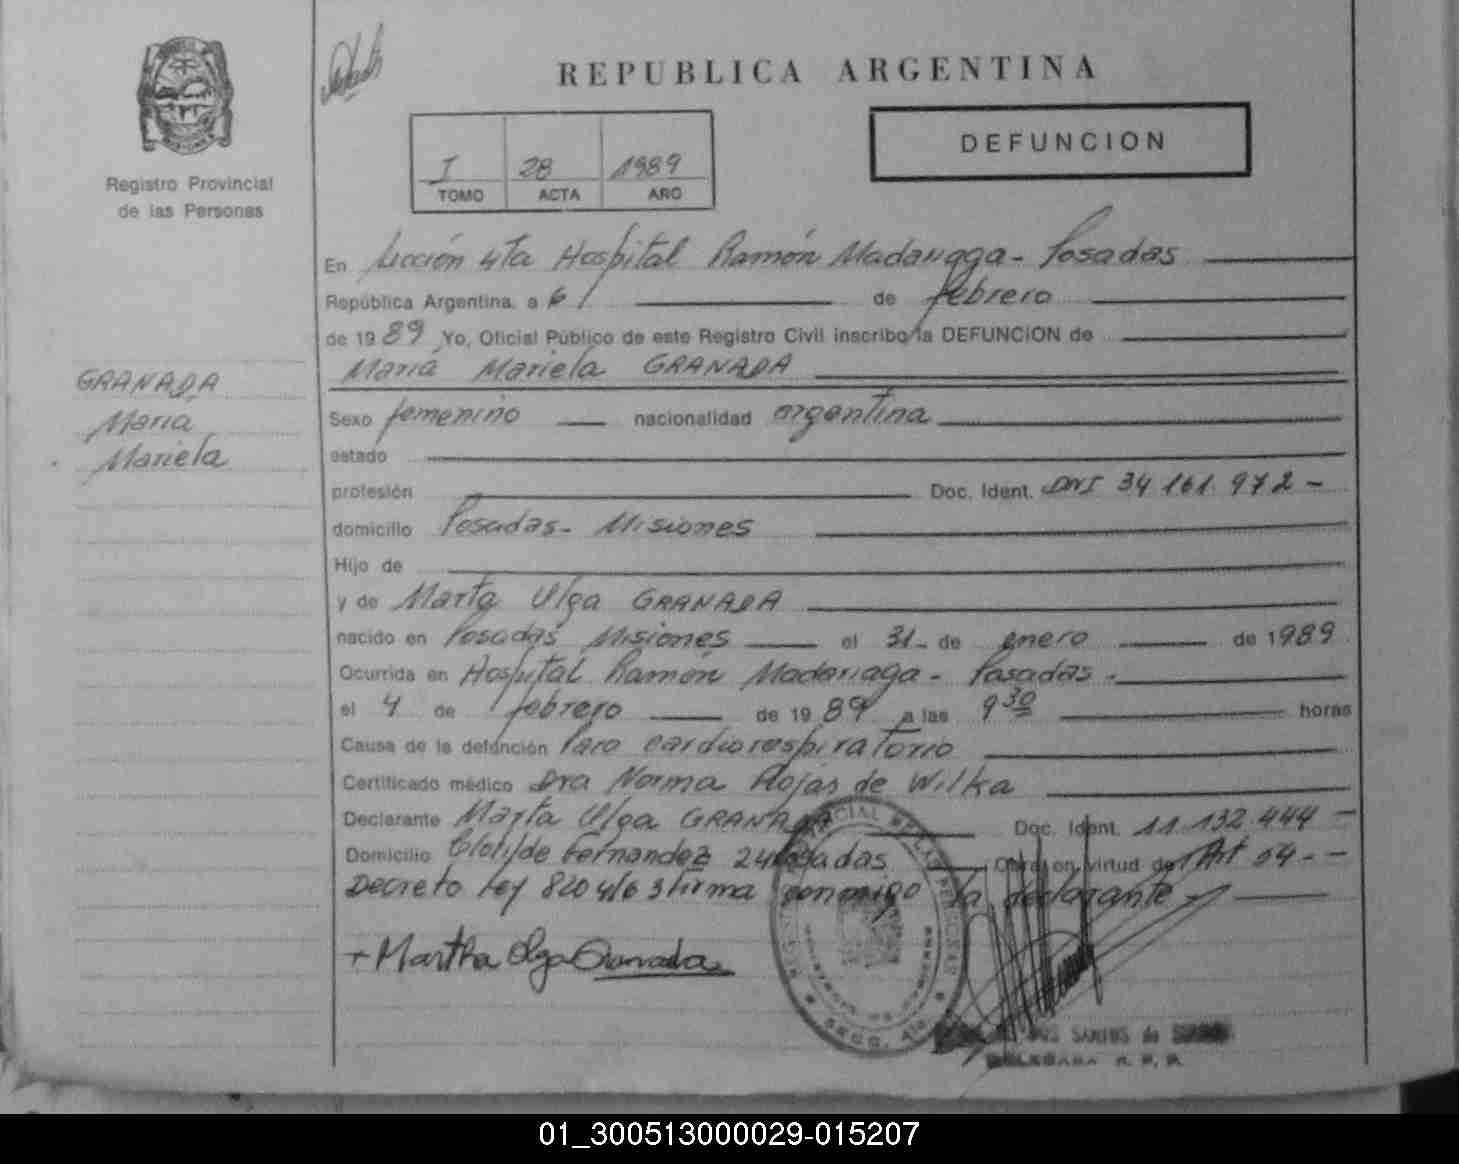 Registro Provincial
de las Personas
REPUBLICA ARGENTINA
DEFUNCION
I 28 1989
TOMO ACTA AÑO
En Sección 4ta Hospital Ramón Madariaga - Posadas
República Argentina, a 6 de febrero
de 1989 Yo, Oficial Público de este Registro Civil inscribo la DEFUNCION de
María Mariela GRANADA
GRANADA
María
Mariela
Sexo femenino nacionalidad argentina
estado
profesión Doc. Ident. DNI 34.161.972 -
domicilio Posadas - Misiones
Hijo de
y de Marta Olga GRANADA
nacido en Posadas Misiones el 31 - de enero de 1989
Ocurrida en Hospital Ramón Madariaga - Posadas -
el 4 de febrero de 1989 a las 9 30 horas
Causa de la defunción Paro cardiorespiratorio
Certificado médico Dra Norma Rojas de Wilka
Declarante Marta Olga GRANADA Doc. Ident. 11.132.444 -
Domicilio Clotilde Fernandez 24 Posadas Obra en virtud de Art 54 - -
Decreto Ley 8204/63 firma conmigo la declarante -
+ Martha Olga Granada
SECC. 4ta
SANTOS de
DELEGADA R. P. P.
01_300513000029-015207